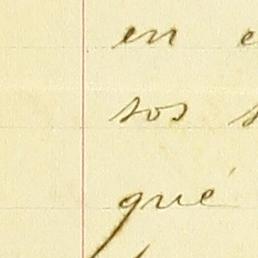 en
sos
qué